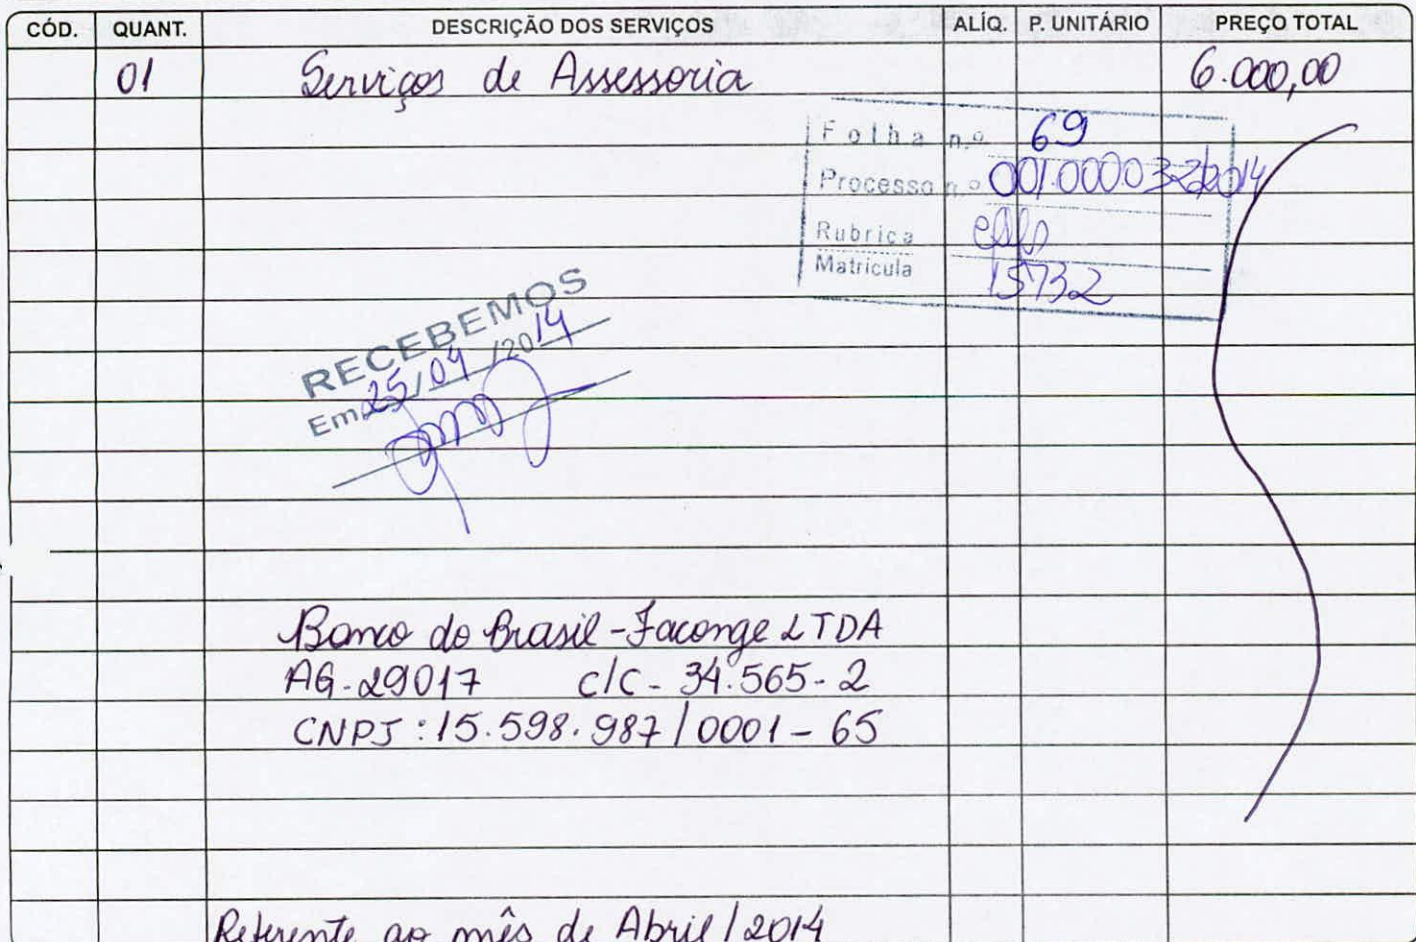 CÓD. QUANT. DESCRIÇÃO DOS SERVIÇOS ALÍQ. P. UNITÁRIO PREÇO TOTAL
01 Serviços de Assessoria 6.000,00
Folha n.º 69
Processo n.º 001.0000.322/2014
Rubrica
Matrícula 15732
RECEBEMOS
Em 25/04/2014
Banco do Brasil - Faconge LTDA
AG-29017 c/c - 34.565-2
CNPJ: 15.598.987/0001-65
Referente ao mês de Abril/2014